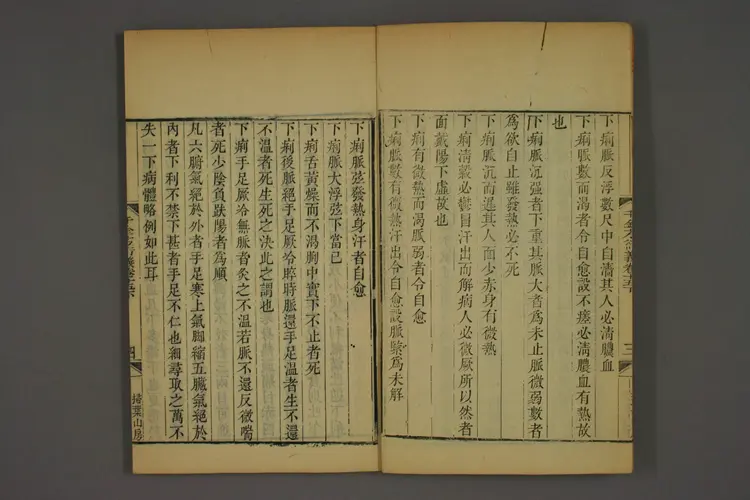 下痢脈反浮數尺中自濇其人必淸膿血
下痢脈數而渴者令自愈設不瘥必淸膿血有熱故
也
下痢脈沉弦者下重其脈大者爲未止脈微弱數者
爲欲自止雖發熱必不死
下痢脈沉而遲其人面少赤身有微熱
下痢淸穀必鬱冒汗出而解病人必微厥所以然者
面戴陽下虛故也
下痢有微熱而渴脈弱者令自愈
下痢脈數有微熱汗出令自愈設脈緊爲未解
三
下痢脈弦發熱身汗者自愈
下痢脈大浮弦下當已
下痢舌黃燥而不渴胸中實下不止者死
下痢後脈絕手足厥冷晬時脈還手足溫者生不還
不溫者死生死之決此之謂也
下痢手足厥冷無脈者灸之不溫若脈不還反微喘
者死少陰負趺陽者爲順
凡六腑氣絕於外者手足寒上氣脚縮五臟氣絕於
內者下利不禁下甚者手足不仁也細尋取之萬不
失一下病體略例如此耳
四
掃葉山房